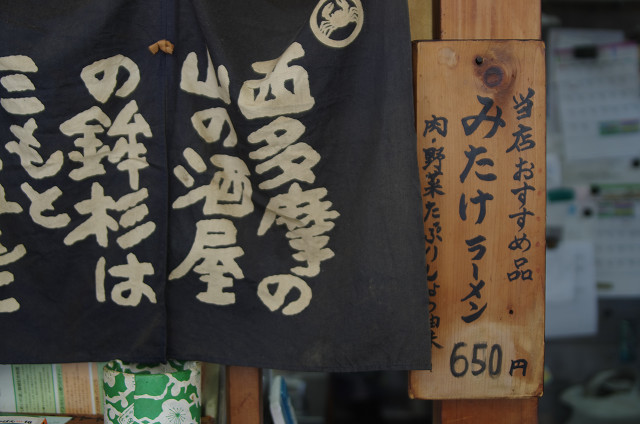 当店おすすめ品
みたけラーメン
肉・野菜たっぷりしょう油味
650円
西多摩の
山の酒屋
の鉾杉は
三もと